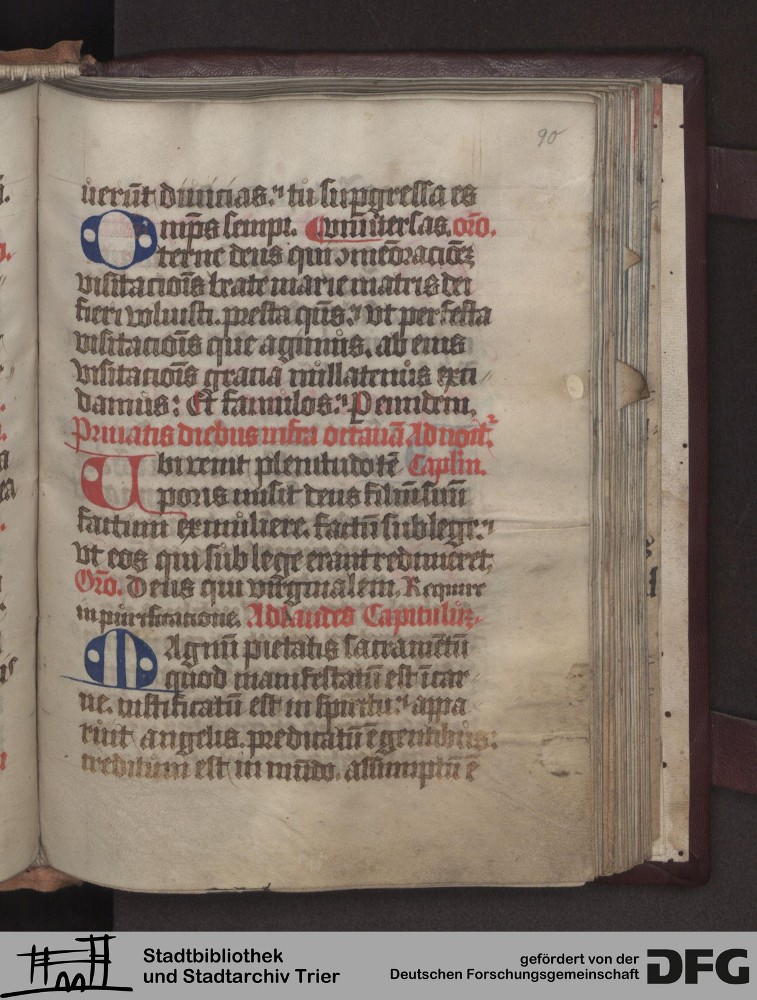 90
uerūt diuicias." tu suꝑgressa es
Omp̄s sempi. Conuūersas. or̄o.
terne deus qui ɔmēoracioēʒ
visitacioīs beate marie matris dei
fieri voluisti. presta q̄us." vt per festa
visitacioīs que agimus. ab eius
visitacioīs gracia nullatenus exci
damus: Et famulos." Penridem.
Priuatis diebus infra octauā Ad noct̄.
Ubi venit plenitudo tē Caplm̄.
poris misit deus filiū suū
factum ex muliere. factū sub lege."
vt eos qui sub lege erant redimeret.
Or̄o. Deus qui virginalem. Require
in purificatione. Ad Laudes Capitulūʒ.
Magnū pietatis sacramētū
quod manifestatū est ī car
ne. iustificatū est in spiritu." appa
ruit angelis. predicatū ē gentibus:
creditum est in mūdo. assumptū ē
Stadtbibliothek
und Stadtarchiv Trier
gefördert von der
Deutschen Forschungsgemeinschaft
DFG